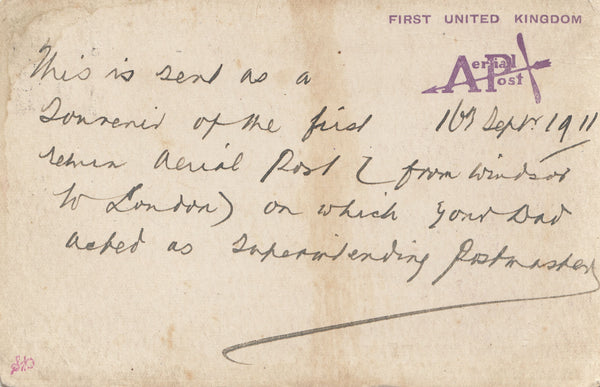 FIRST UNITED KINGDOM
Aerial Post
This is sent as a
Souvenir of the first
16th Septr 1911
return Aerial Post (from Windsor
to London) on which your Dad
acted as Superintending Postmaster